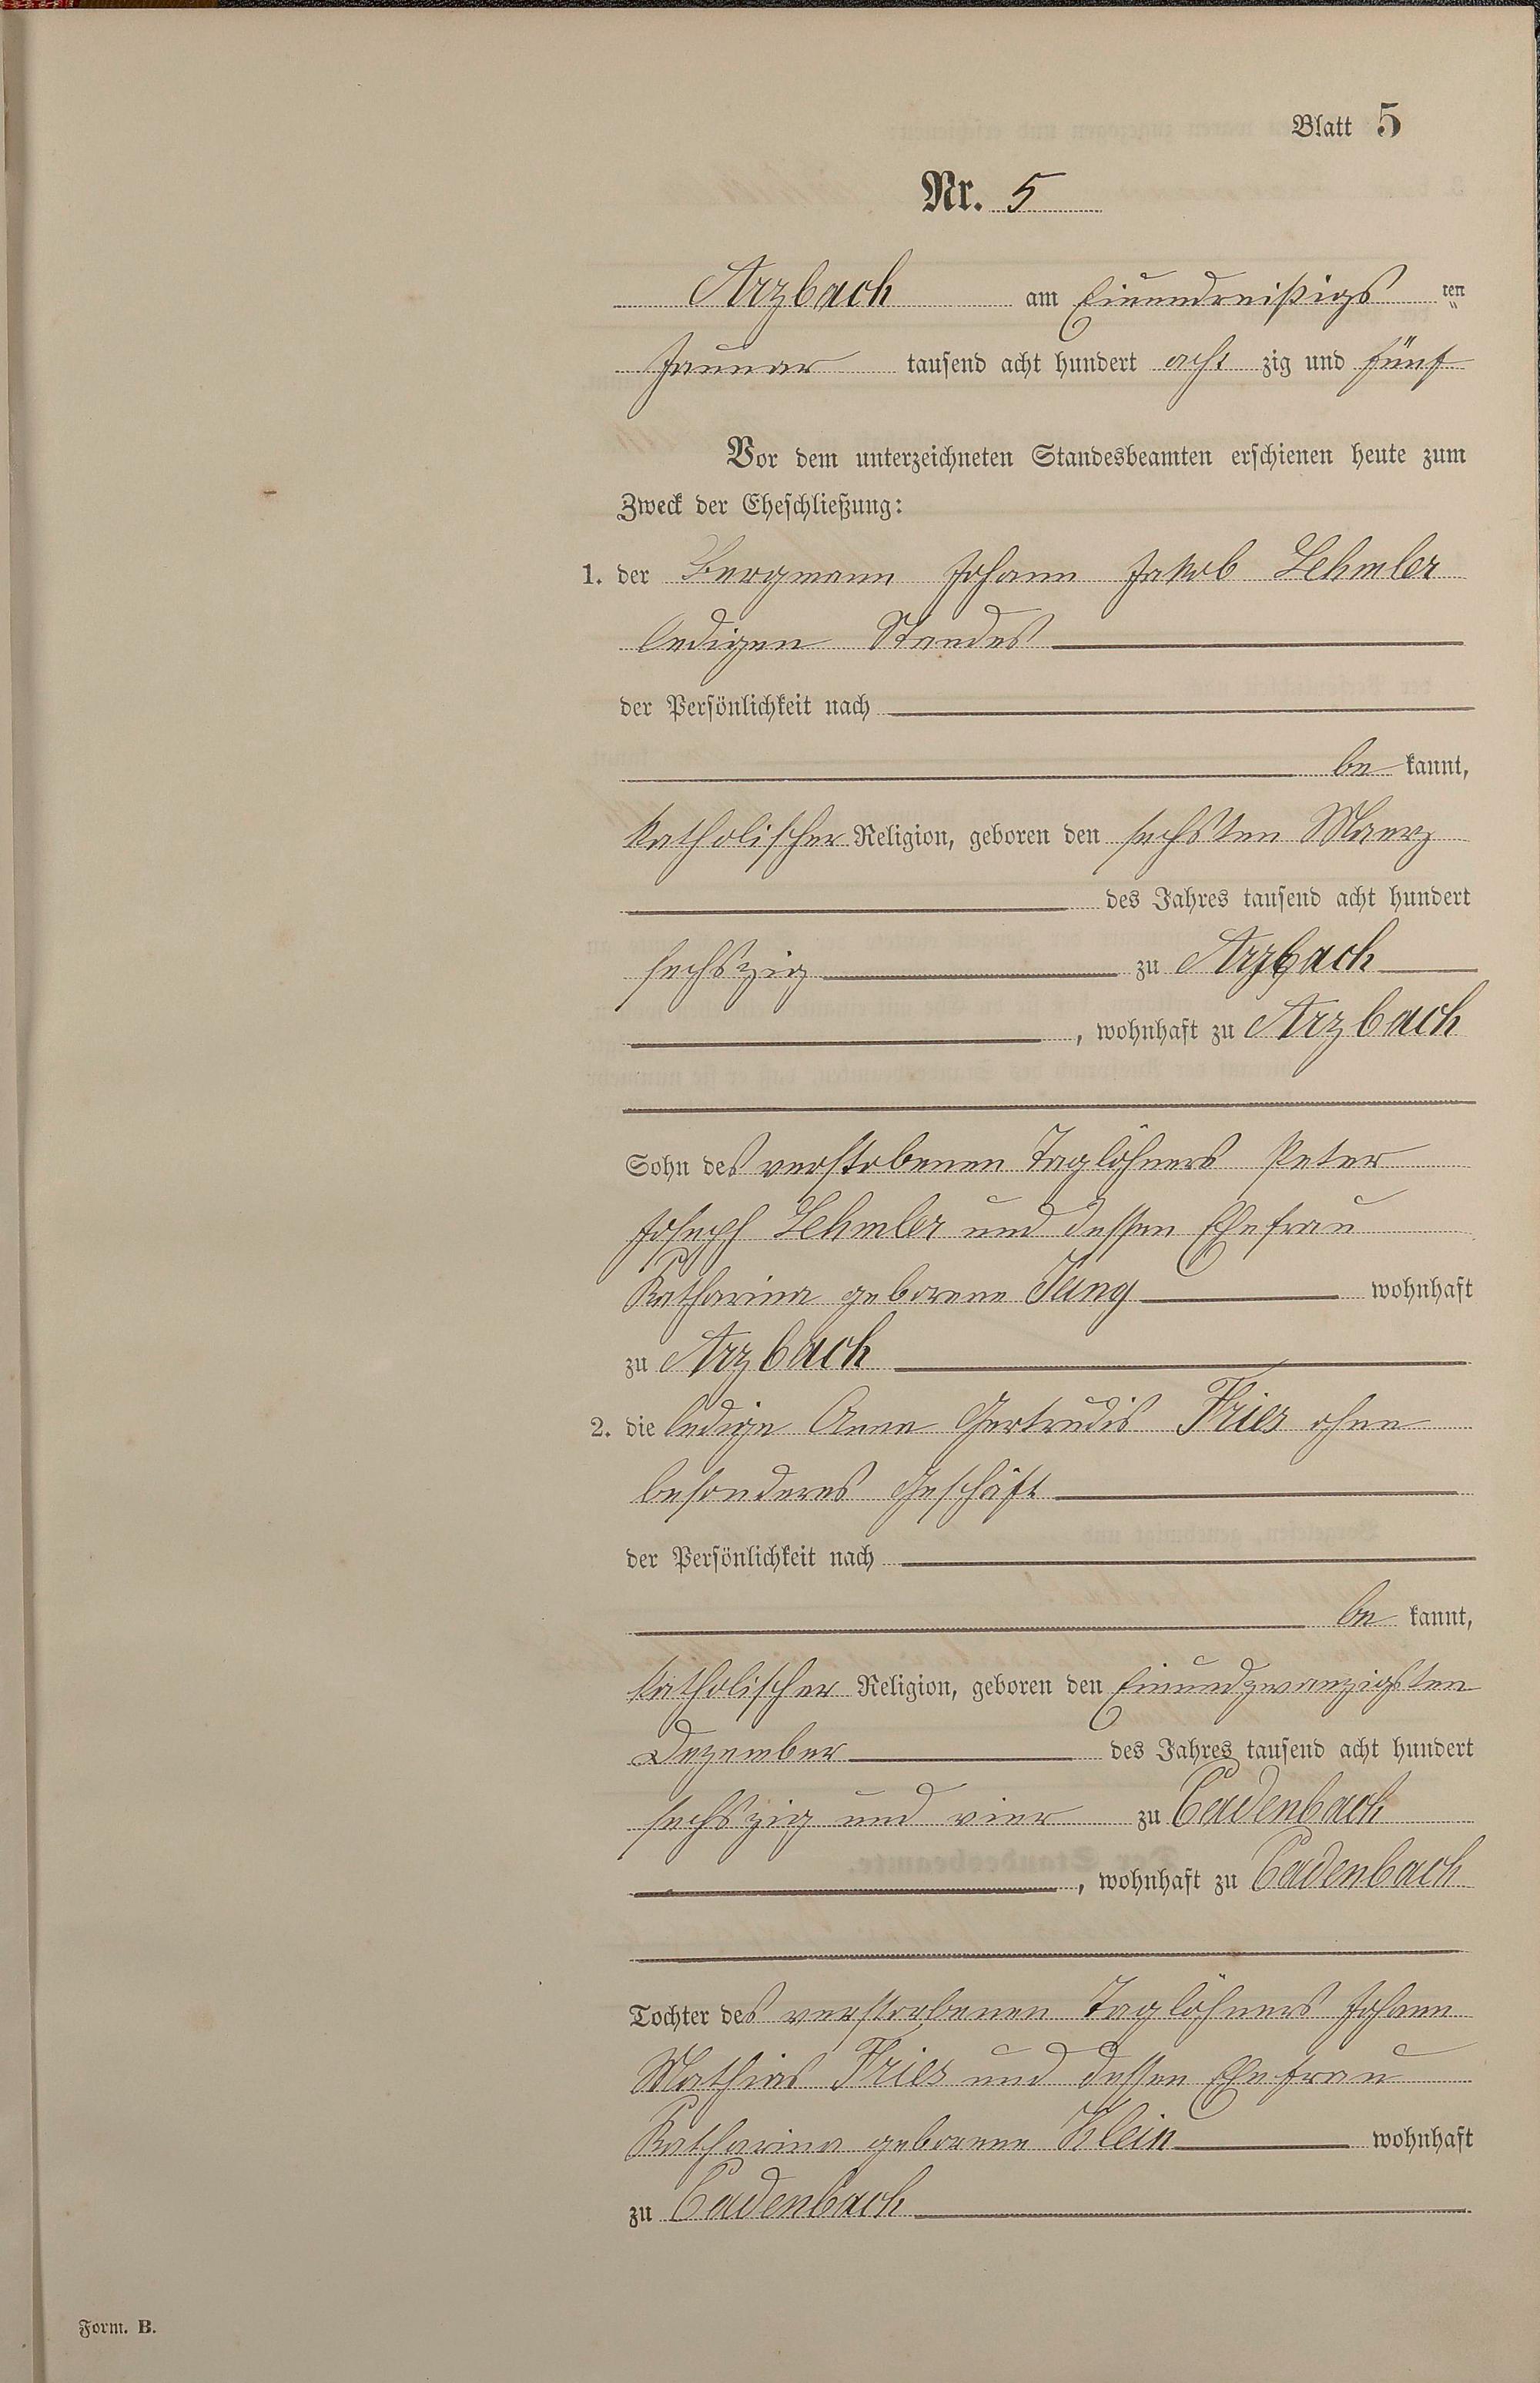 Blatt 5
Nr. 5
Arzbach am Einundreißigs ten
Januar tausend acht hundert acht zig und fünf
Vor dem unterzeichneten Standesbeamten erschienen heute zum
Zweck der Eheschließung:
1. der Bergmann Johann Jakob Lehmler
ledigen Standes
der Persönlichkeit nach
be kannt,
katholischer Religion, geboren den sechsten Maerz
des Jahres tausend acht hundert
sechszig zu Arzbach
, wohnhaft zu Arzbach
Sohn des verstobenen Taglöhners Peter
Joseph Lehmler und dessen Ehefrau
Katharina geborene Jung wohnhaft
zu Arzbach
2. die ledige Anna Gertrudis Fries ohne
besonderes Geschäft
der Persönlichkeit nach
be kannt,
katholischer Religion, geboren den Einundzwanzigsten
Dezember des Jahres tausend acht hundert
sechszig und vier zu Cadenbach
, wohnhaft zu Cadenbach
Tochter des verstorbenen Taglöhners Johann
Mathias Fries und dessen Ehefrau
Katharina geborene Klein wohnhaft
zu Cadenbach
Form. B.